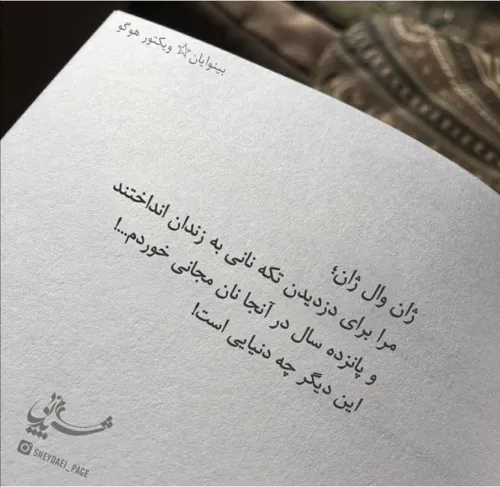 بینوایان☆ ویکتور هوگو
ژان وال ژان؛
مرا برای دزدیدن تکه نانی به زندان انداختند
و پانزده سال در آنجا نان مجانی خوردم...!
این دیگر چه دنیایی است!
SHEYDAEI_PAGE